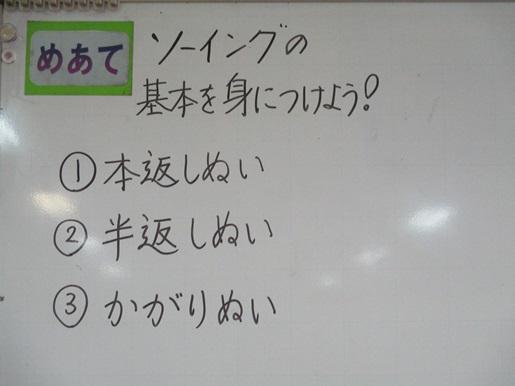 めあて ソーイングの
基本を身につけよう!
① 本返しぬい
② 半返しぬい
③ かがりぬい